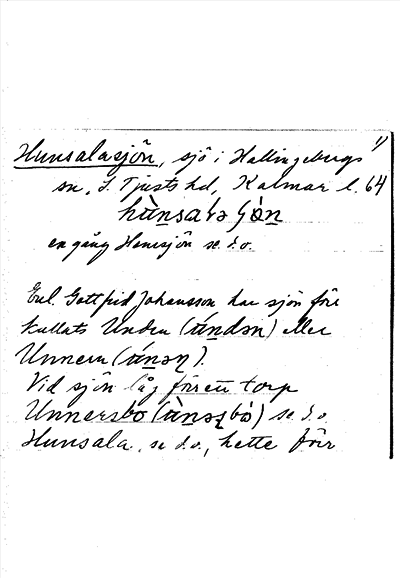 1)
Hunsalasjön, sjö i Hallingebergs
sn, S. Tjusts hd, Kalmar l. 64
hùnsaɩə ʃön
en gång Hensjön se d.o.
Enl. Gottfrid Johansson har sjön förr
kallats Unden (úndən) eller
Unnern (únəɳ).
Vid sjön låg förr ett torp
Unnersbo (ùnəʂbó) se d.o
Hunsala, se d.o., hette förr